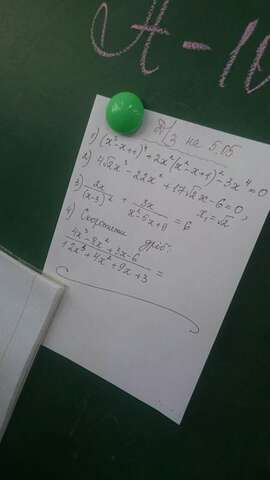 A-10
Д/З на 5.05
1) (x²-x+1)⁴+2x²(x²-x+1)²-3x⁴=0
2) 4√2x³-22x²+17√2x-6=0, x₁=√2
3) 2x/(x-3)² + 3x/(x²-6x+8) = 6
4) Скоротити дріб:
(4x³-8x²+3x-6)/(12x³+4x²+9x+3) =